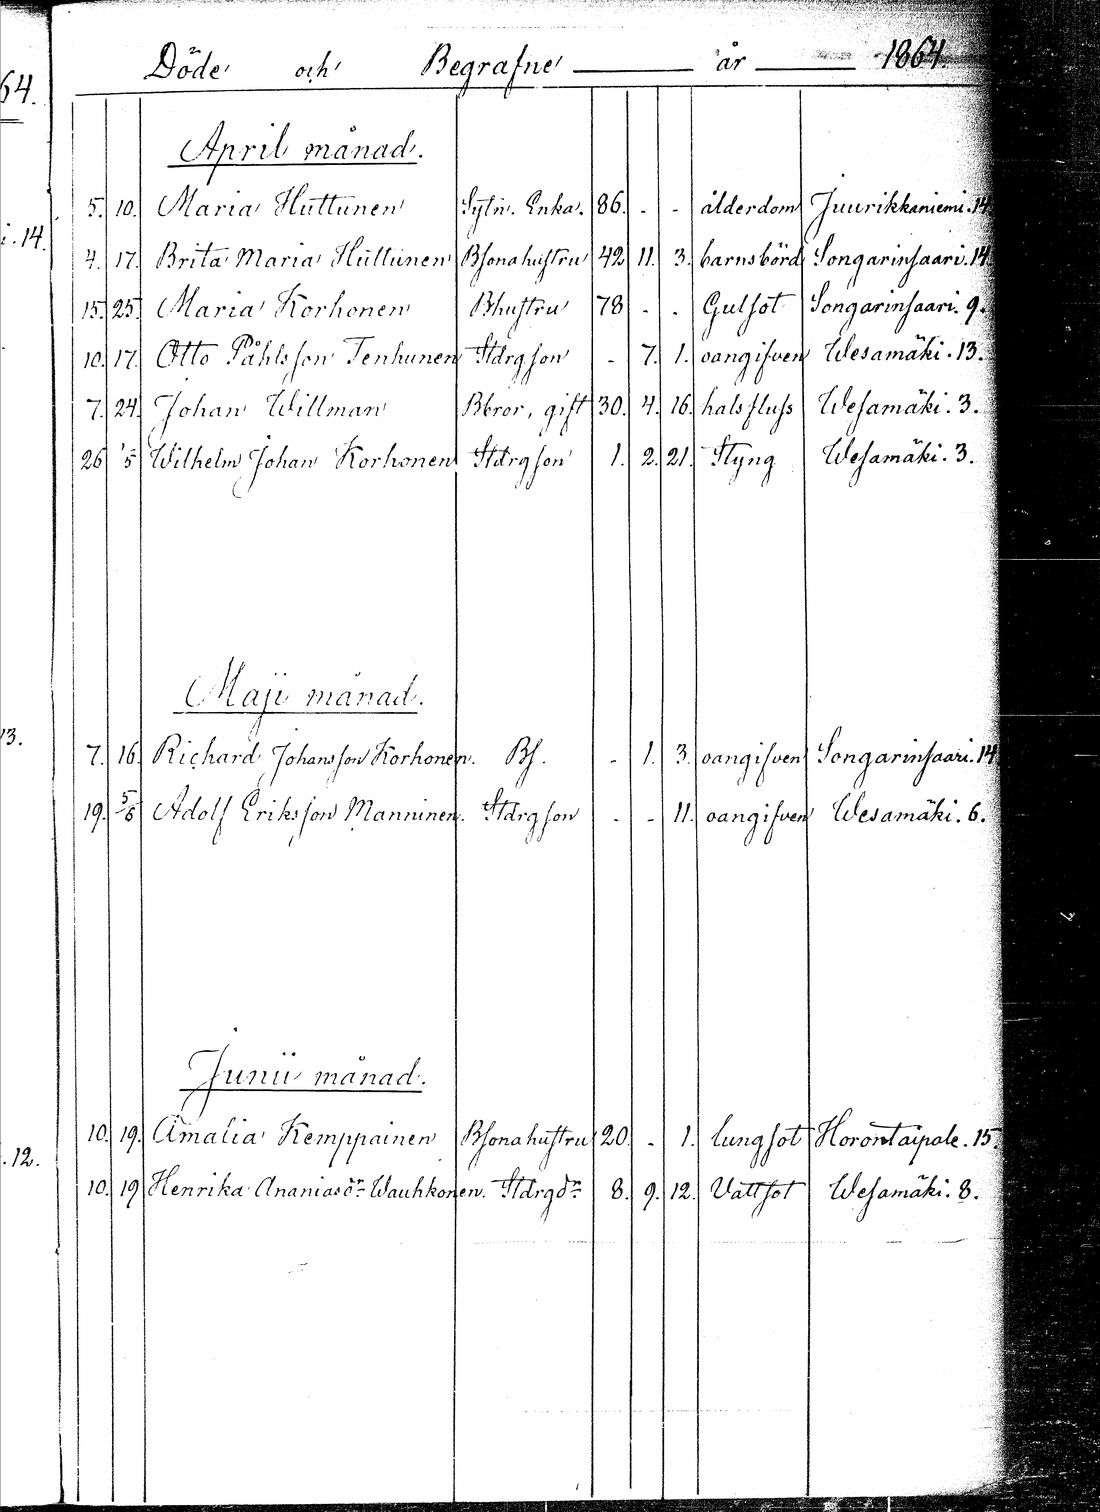 64.
Döde och Begrafne år 1864.
April månad.
5. 10. Maria Huttunen Sytn. Enka. 86. - - ålderdom Juurikkaniemi. 14
i. 14.
4. 17. Brita Maria Huttunen Bsonahustru 42 11. 3. barnsbörd Songarinsaari. 14
15. 25. Maria Korhonen Bhustru 78 - . Gulsot Songarinsaari. 9.
10. 17. Otto Påhlsson Tenhunen Stdrgson - 7. 1. oangifven Wesamäki. 13.
7. 24. Johan Willman Bbror, gift 30. 4. 16. halsfluss Wesamäki. 3.
26 5 Wilhelm Johan Korhonen Stdrgson 1. 2. 21. Styng Wesamäki. 3.
Maji månad.
13.
7. 16. Richard Johansson Korhonen. Bs. - 1. 3. oangifven Songarinsaari. 14
19. 5/6 Adolf Eriksson Manninen. Stdrgson - - 11. oangifven Wesamäki. 6.
Junii månad.
10. 19. Amalia Kemppainen Bsonahustru 20. - 1. lungsot Horontaipale. 15.
. 12.
10. 19 Henrika Ananiasdr Wauhkonen. Stdrgdr 8. 9. 12. Vattsot Wesamäki. 8.